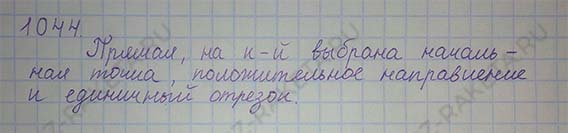 1044.
Прямая, на к-й выбрана началь-
ная точка, положительное направление
и единичный отрезок.